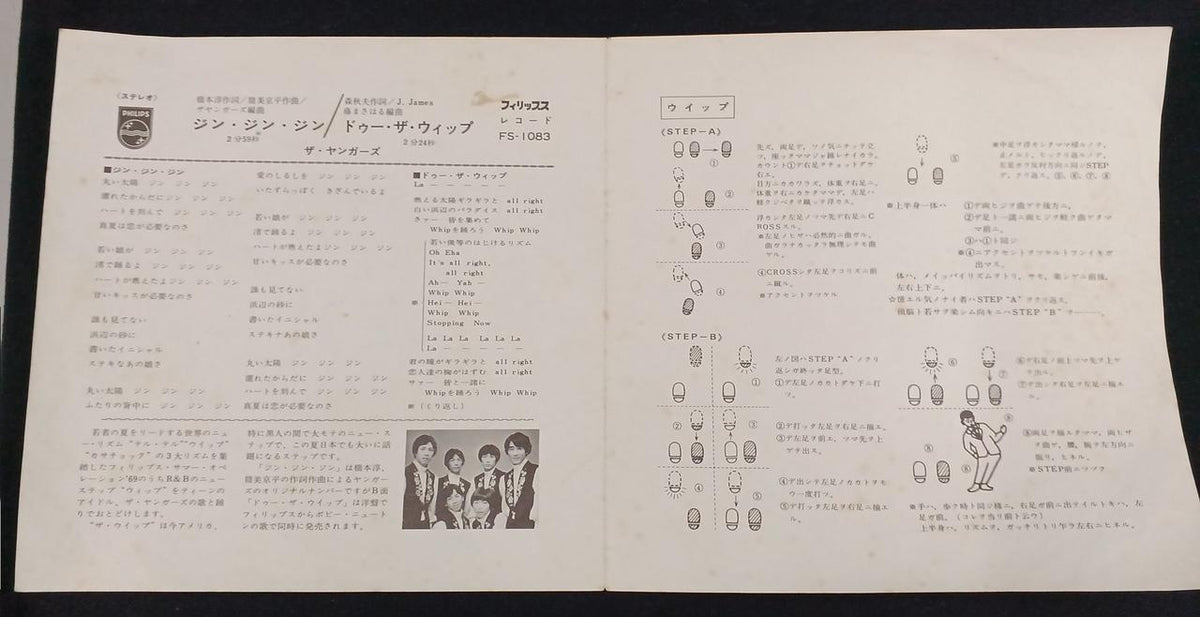 〈ステレオ〉
PHILIPS
橋本淳作詞/筒美京平作曲/
ザヤンガーズ編曲
ジン・ジン・ジン
2分59秒
森秋夫作詞/J. James
藤まさはる編曲
ドゥー・ザ・ウィップ
2分24秒
ザ・ヤンガーズ
フィリップス
レコード
FS-1083
■ジン・ジン・ジン
丸い太陽 ジン ジン ジン
濡れたからだに ジン ジン ジン
ハートを刻んで ジン ジン ジン
真夏は恋が必要なのさ
若い娘が ジン ジン ジン
渚で踊るよ ジン ジン ジン
ハートが燃えたよ ジン ジン ジン
甘いキッスが必要なのさ
誰も見てない
浜辺の砂に
書いたイニシャル
ステキなあの娘さ
丸い太陽 ジン ジン ジン
ふたりの背中に ジン ジン ジン
愛のしるしを ジン ジン ジン
いたずらっぽく きざんでいるよ
若い娘が ジン ジン ジン
渚で踊るよ ジン ジン ジン
ハートが燃えたよ ジン ジン ジン
甘いキッスが必要なのさ
誰も見てない
浜辺の砂に
書いたイニシャル
ステキナあの娘さ
丸い太陽 ジン ジン ジン
濡れたからだに ジン ジン ジン
ハートを刻んで ジン ジン ジン
真夏は恋が必要なのさ
■ドゥー・ザ・ウィップ
La — — — — —
燃える太陽ギラギラと all right
白い浜辺のパラダイス all right
さァー 皆を集めて
Whipを踊ろう Whip Whip
若い僕等のはじけるリズム
Oh Eha
It's all right,
all right
Ah— Yah —
Whip Whip
※ Hei— Hei—
Whip Whip
Stopping Now
La La La La La La
La — — — — —
君の瞳がギラギラと all right
恋人達の胸がはずむ all right
サァー 皆と一緒に
Whipを踊ろう Whip Whip
※ (くり返し)
若者の夏をリードする世界のニュ
ー・リズム"テル・テル""ウイップ"
"カサチョック"の3大リズムを集
結したフィリップス・サマー・オペ
レーション'69のうちR&Bのニュー
ステップ"ウィップ"をティーンの
アイドル、ザ・ヤンガーズの歌と踊
りでおとどけします。
"ザ・ウィップ"は今アメリカ、
特に黒人の間で大モテのニュー・ス
テップで、この夏日本でも大いに話
題になるステップです。
「ジン・ジン・ジン」は橋本淳、
筒美京平の作詞作曲によるヤンガー
ズのオリジナルナンバーですがB面
「ドゥー・ザ・ウィップ」は洋盤で
フィリップスからボビー・ニュート
ンの歌で同時に発売されます。
ウイップ
《STEP-A》
①
②
③
④
先ズ、両足デ、ソノ気ニナッテ立
カウント①デ右足ヲチョットダケ
右エ。
目方ニカカワラズ、体重ヲ右足ニ。
体重ヲ右ニカケタママデ、左足ハ
軽クジベタヲ蹴ッテ浮カス。
浮カシタ左足ノツマ先ヲ右足ニC
ROSSスル。
※左足ノヒザハ必然的ニ曲ガル。
④CROSSシタ左足デコリズニ前
ニ蹴ル。
※アクセントヲツケル
⑤
デ、クリ返ス。⑤、⑥、⑦、⑧
※上半身一体ハ
①デ両ヒジヲ曲ゲテ後方ニ。
②デ足ト一諸ニ両ヒジヲ軽ク曲ゲタマ
マ前ニ。
③ハ①ト同ジ
※④ニアクセントヲツケルトフンイキガ
出マス。
体ハ、メイッパイリズムヲトリ、サモ、楽シゲニ前後、
左右上下ニ。
☆憶エル気ノナイ者ハSTEP "A" ヲクリ返ス。
頭脳ト若サヲ楽シム向キニハSTEP "B" ヲ———。
《STEP-B》
左ノ図ハSTEP "A" ノクリ
返シガ終ッタ足型。
①デ左足ノカカトダケ下ニ打
ツ。
②デ打ッタ左足ヲ右足ニ揃エ。
③デ左足ヲ前エ、ツマ先ヲ上
ゲテ出ス。
④デ出シタ左足ノカカトヲモ
ウ一度打ツ。
⑤デ打ッタ左足ヲ右足ニ揃エ
ル。
①
②
③
④
⑤
⑥
⑦
⑧
⑥デ右足ノ前エツマ先ヲ上ゲ
テ出ル。
⑦デ出シタ右足ヲ左足ニ揃エ
ル。
⑧両足ヲ揃エタママ、両ヒザ
ヲ曲ゲ、腰、腕ヲ左方向ニ
振り、ヒネル。
※STEP前ニツヅク
※手ハ、歩ク時ト同ジ様ニ、右足ガ前ニ出テイルトキハ、左
足ガ前。(コレヲ当リ前ト云ウ)
上半身ハ、リズムヲ、ガッチリトリ乍ラ左右ニヒネル。